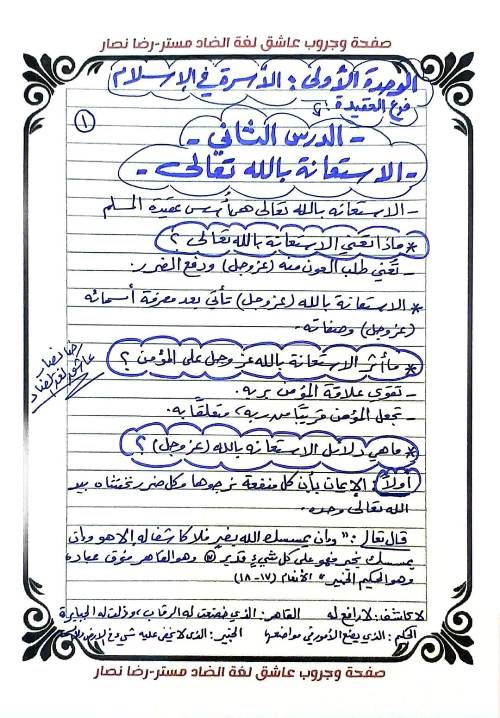 صفحة وجروب عاشق لغة الضاد مستر-رضا نصار
الوحدة الأولى : الأسرة في الإسلام
فرع العقيدة :
١
- الدرس الثاني -
- الاستعانة بالله تعالى -
- الاستعانة بالله تعالى هي أسس عقيدة المسلم
* ماذا تعني الاستعانة بالله تعالى ؟
- تعني طلب العون منه (عزوجل) ودفع الضرر.
* الاستعانة بالله (عزوجل) تأتي بعد معرفة أسمائه
(عزوجل) وصفاته.
* ما أثر الاستعانة بالله عز وجل على المؤمن ؟
- تقوي علاقة المؤمن بربه.
- تجعل المؤمن قريبًا من ربه، متعلقًا به.
رضا نصار
عاشق لغة الضاد
* ما هي دلائل الاستعانة بالله (عزوجل) ؟
أولاً : الإيمان بأن كل منفعة نرجوها وكل ضرر نخشاه بيد
الله تعالى وحده.
قال تعالى : " وإن يمسسك الله بضر فلا كاشف له إلا هو وإن
يمسسك بخير فهو على كل شيء قدير (١٧) وهو القاهر فوق عباده
وهو الحكيم الخبير " الأنعام (١٧-١٨)
لا كاشف : لا رافع له القاهر : الذي خضعت له الرقاب، وذلت له الجبابرة
الحكيم : الذي يضع الأمور في مواضعها الخبير : الذي لا يخفى عليه شيء في الأرض
صفحة وجروب عاشق لغة الضاد مستر-رضا نصار